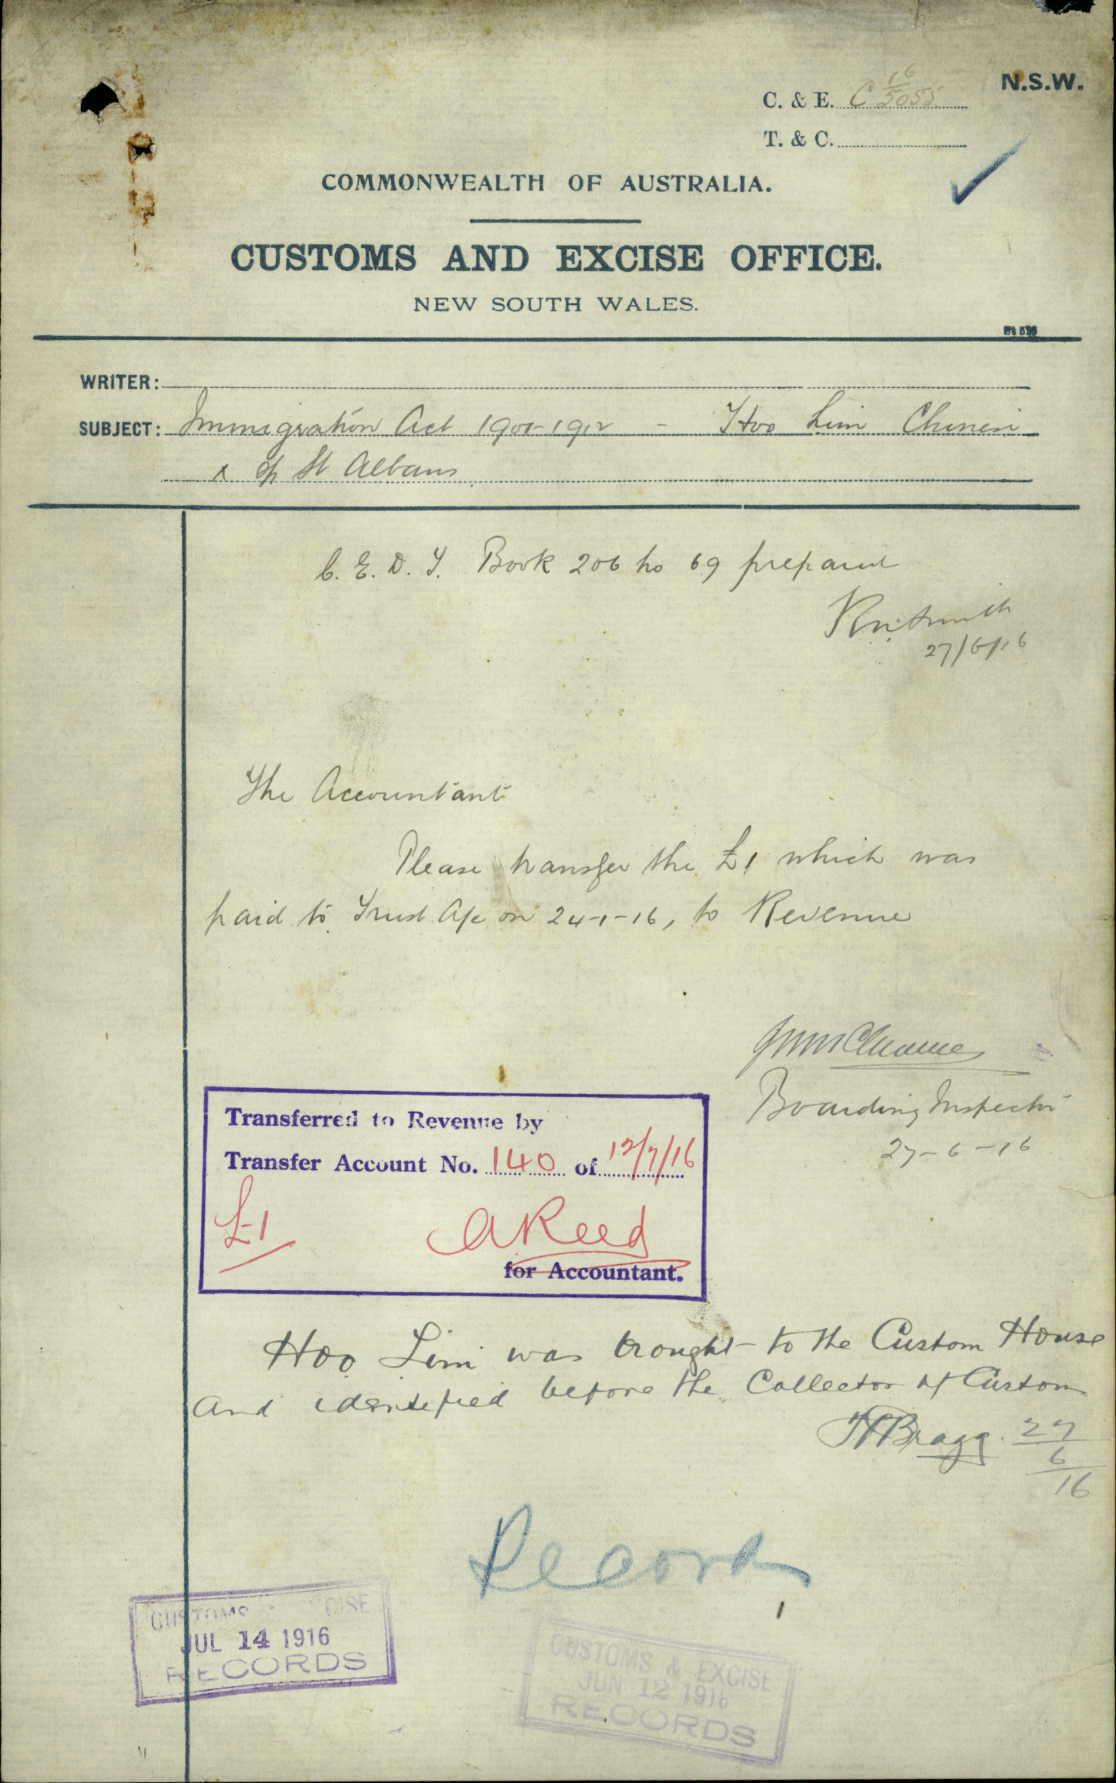 N.S.W.
C. & E. C 16/5055
T. & C.
COMMONWEALTH OF AUSTRALIA.
CUSTOMS AND EXCISE OFFICE.
NEW SOUTH WALES.
WRITER:
SUBJECT: Immigration Act 1901-1912 - Hoo Lim Chinese
x of St Albans
C. E. D. T. Book 206 no 69 prepared
Smith
27/6/16
The Accountant
Please transfer the £1 which was
paid to Trust A/c on 24-1-16, to Revenue
Boarding Inspector
27-6-16
Transferred to Revenue by
Transfer Account No. 140 of 12/7/16
£1 A Reed
for Accountant.
Hoo Lim was brought to the Custom House
and identified before the Collector of Custom
Bragg 27/6/16
Record
CUSTOMS & EXCISE
JUL 14 1916
RECORDS
CUSTOMS & EXCISE
JUN 12 1916
RECORDS